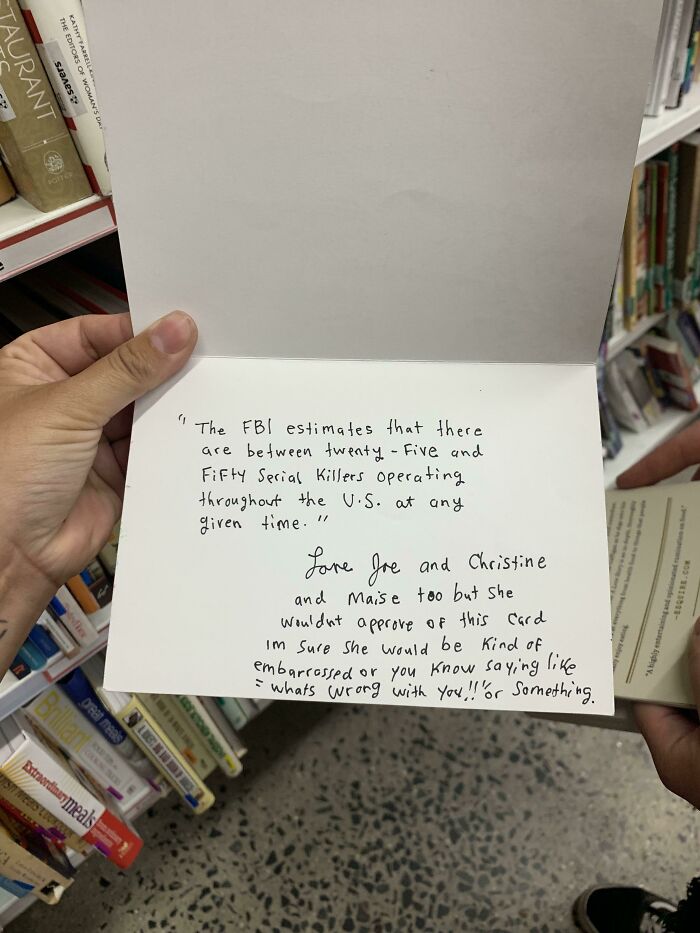 STAURANT
KATHY FARRELL
THE EDITORS OF WOMAN'S DAY
savers
POTTER
" The FBI estimates that there
are between twenty - Five and
FiFty Serial Killers operating
throughout the U.S. at any
given time. "
Love Joe and Christine
and Maise too but she
wouldnt approve of this card
Im sure she would be kind of
embarrassed or you know saying like
" whats wrong with you!!" or something.
"A highly entertaining and opinionated
—ESQUIRE.COM
Brilliant
great meals
Extraordinary meals